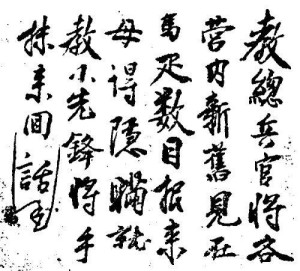 教總兵官將各
營內新舊見在
馬疋數目報来
毋得隱瞞就
教小先鋒將手
抹来回話